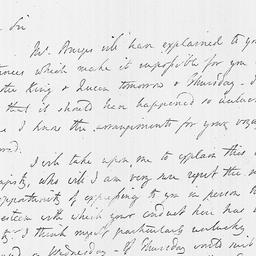 Sir
Mr. will have explained to you
which make it impossible for you
the King & Queen tomorrow & Thursday
that it should have happened so
I know the arrangements for your
I will take upon me to explain this
who will I am very sure regret the
opportunity of expressing to you in person
esteem with which your conduct here has
I think myself particularly unlucky
Wednesday - If Thursday